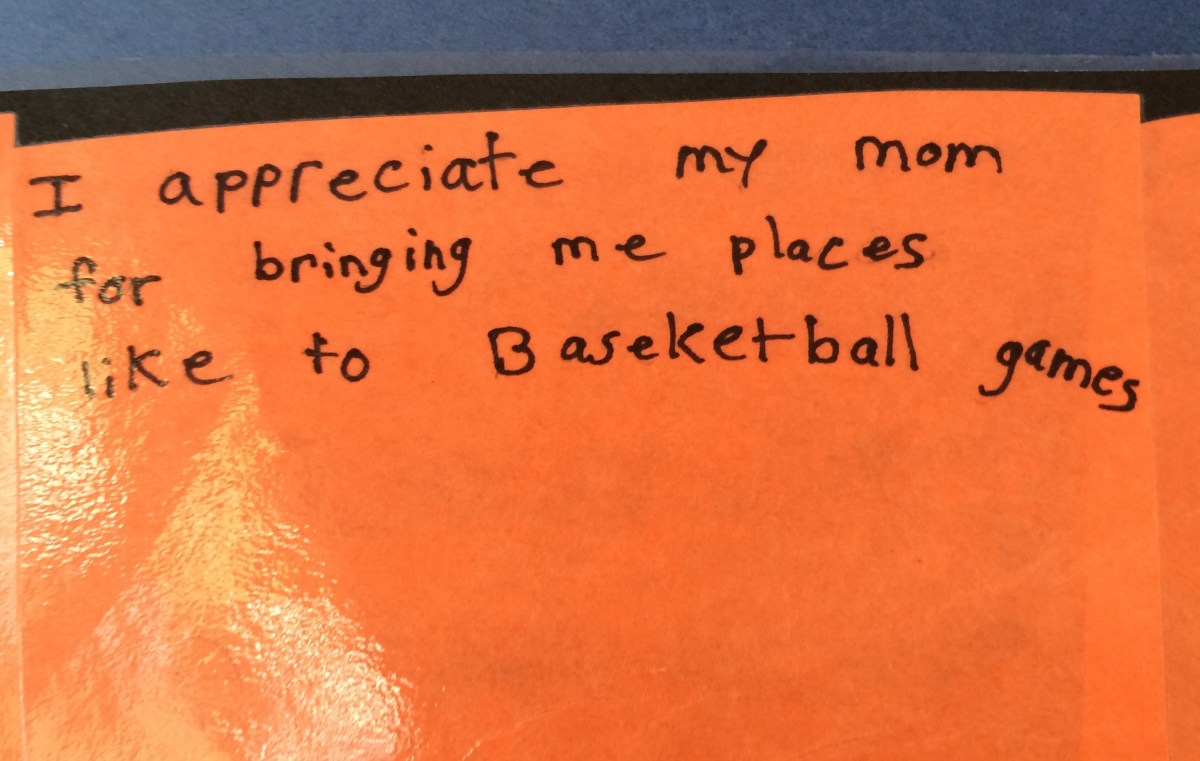 I appreciate my mom
for bringing me places
like to Baseketball games